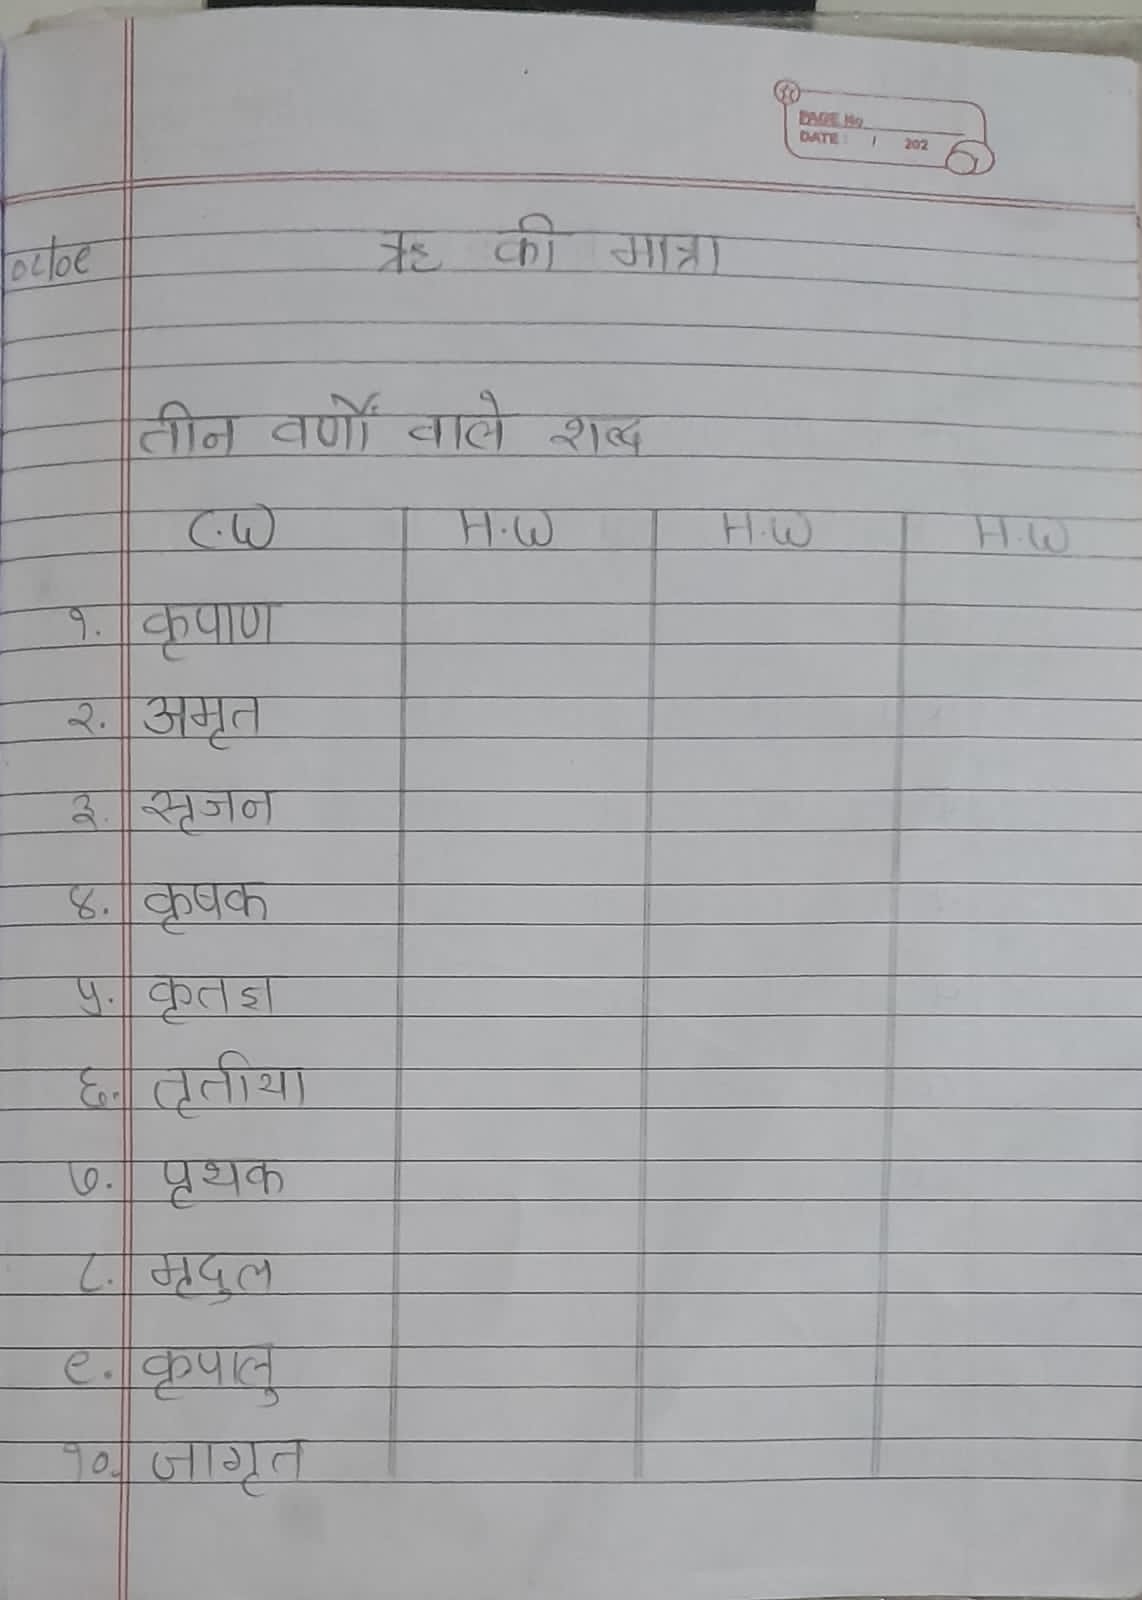 PAGE No.
DATE: / 202
०८/०९
ऋ की मात्रा
तीन वर्णों वाले शब्द
C.W H.W H.W H.W
१. कृपाण
२. अमृत
३. सृजन
४. कृषक
५. कृतज्ञ
६. तृतीया
७. पृथक
८. मृदुल
९. कृपालु
१०. जागृत